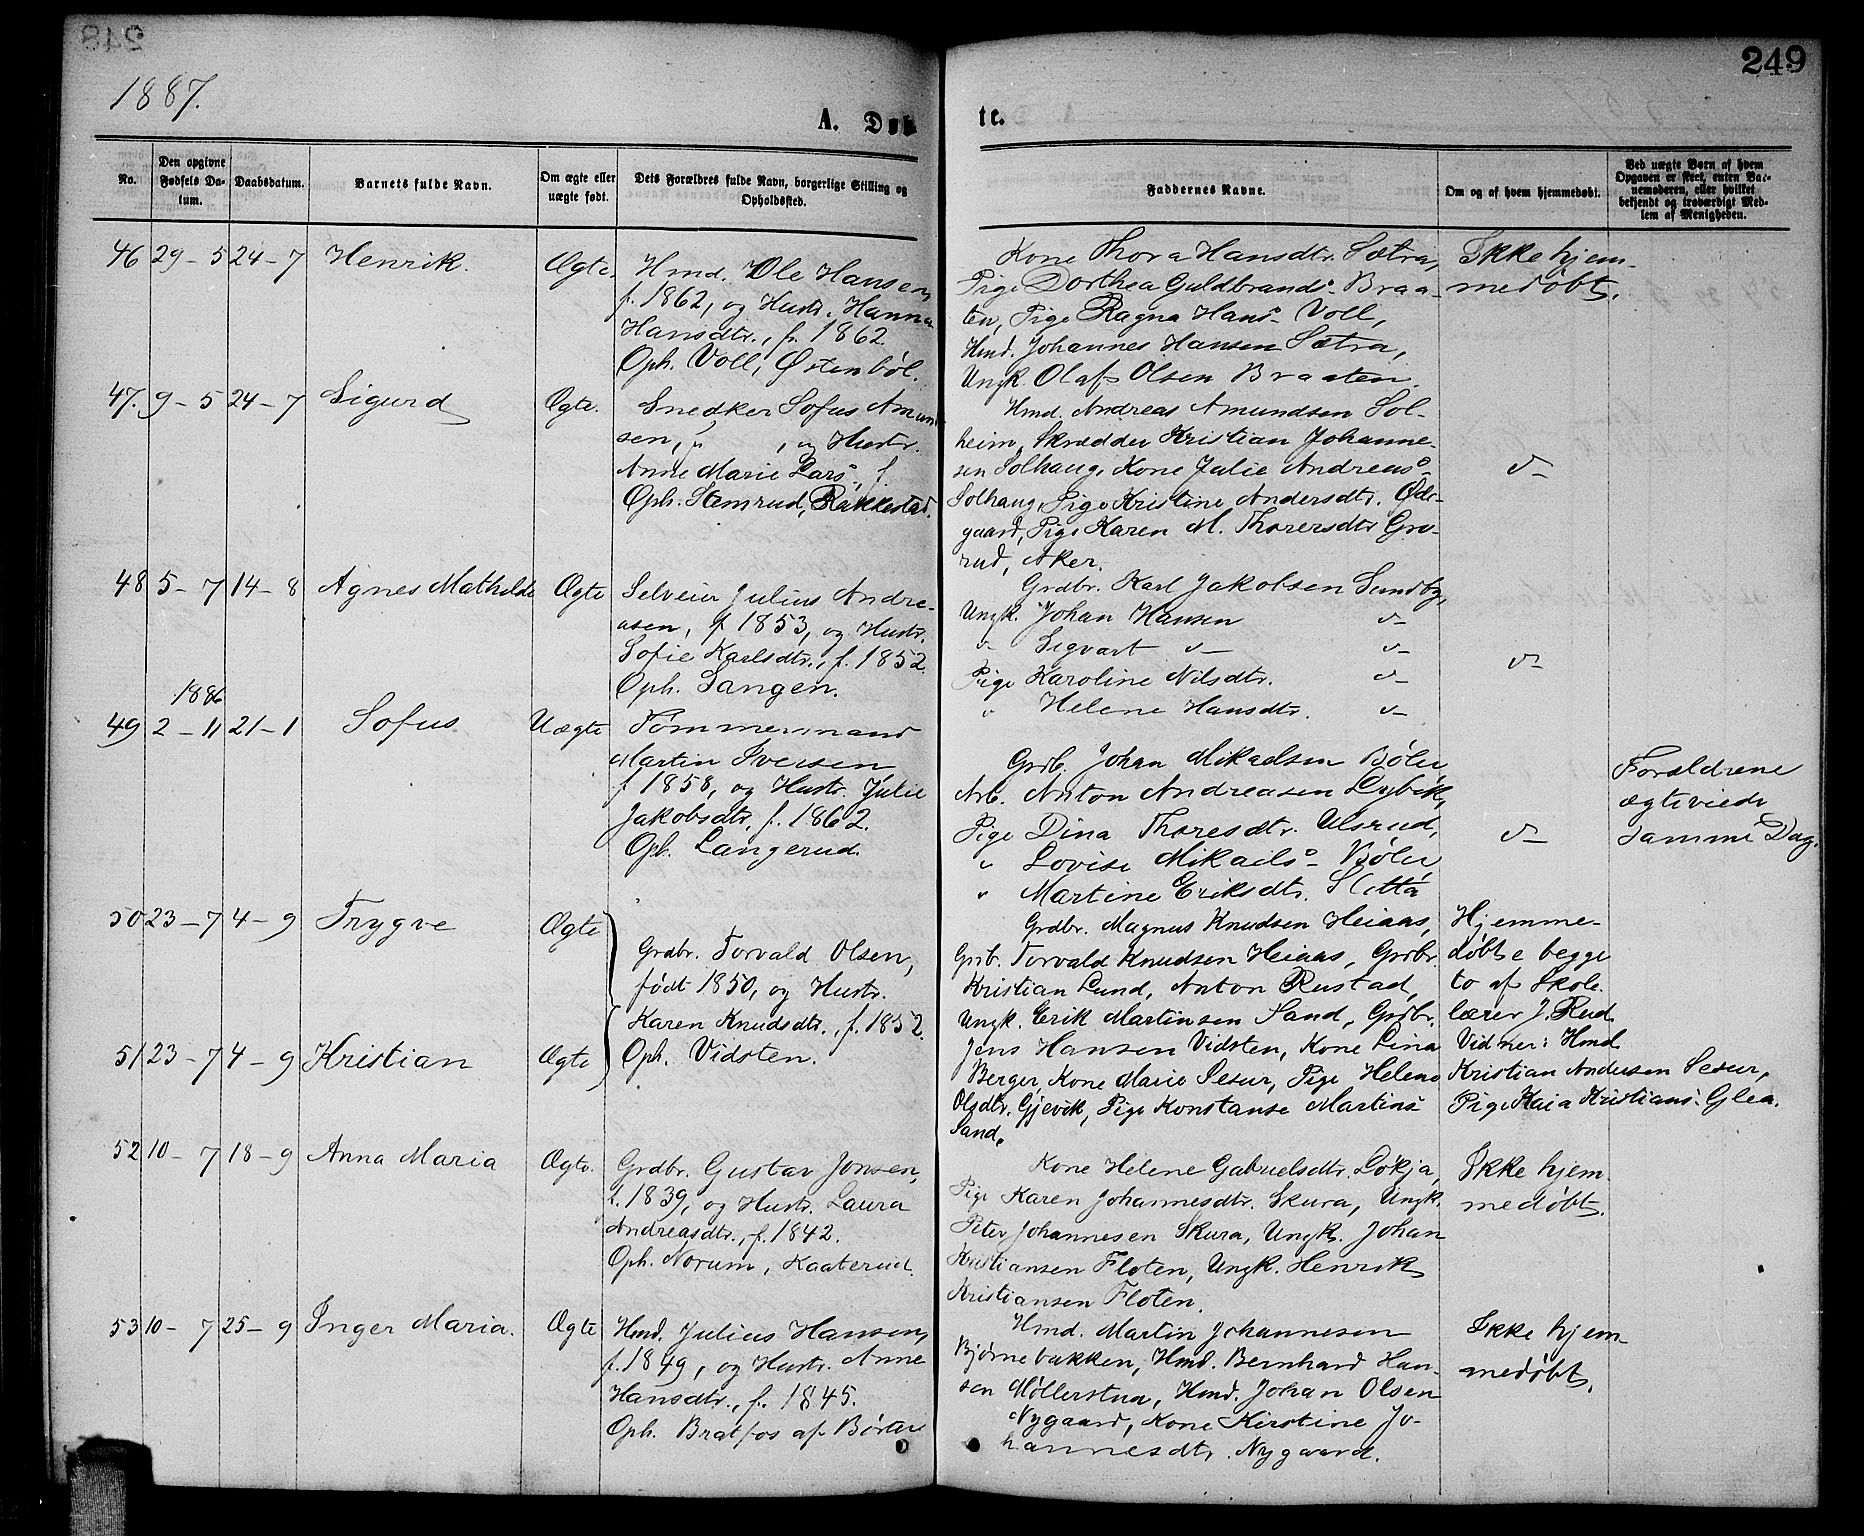 249
1887.
A. Døb
te.
No.
Den opgivne Fødsels Da-
tum.
Daabsdatum.
Barnets fulde Navn.
Om ægte eller
uægte født.
Dets Forældres fulde Navn, borgerlige Stilling og
Opholdssted.
Faddernes Navne.
Om og af hvem hjemmedøbt.
Ved uægte Børn af hvem
Opgaven er skeet, enten Bar-
nemoderen, eller hvilket
bekjendt og troværdigt Med-
lem af Menigheden.
46 29-5 24-7 Henrik. Ægte.
Hmd. Ole Hansen,
f. 1862, og Hustr. Hanna
Hansdtr., f. 1862
Oph. Voll, Østenbøl.
Kone Thora Hansdtr. Sætra,
Pige Dorthea Guldbrands- Braa-
ten, Pige Ragna Hans- Voll,
Hmd. Johannes Hansen Sætra,
Ungk. Olaf Olsen Braaten.
Ikke hjem-
medøbt.
47. 9-5 24-7 Sigurd Ægte.
Snedker Sofus Amund
sen, f. , og Hustr.
Anne Marie Lars-, f.
Oph. Stemrud, Rakkestad.
Hmd. Andreas Amundsen Sol-
heim, Skrædder Kristian Johanne-
sen Solhaug, Kone Julie Andreas-
Solhaug, Pige Kristine Andersdtr. Øde-
gaard, Pige Karen M. Thorersdtr Gro-
rud, Aker.
v-
48 5-7 14-8 Agnes Mathilde Ægte
Selveier Julius Andre-
asen, f. 1853, og Hustr.
Sofie Karlsdtr., f. 1852
Oph. Langen.
Grdbr. Karl Jakobsen Sundby,
Ungk. Johan Hansen v-
v- Sigvart v- v-
Pige Karoline Nilsdtr. v-
" Helene Hansdtr. v-
v-
1886
49 2-11 21-1 Sofus. Uægte
Tømmermand
Martin Iversen
f. 1858, og Hustr. Julie
Jakobsdtr, f. 1862.
Oph. Langerud.
Grdb. Johan Mikaelsen Bøler
Arb. Anton Andreasen Lybæk,
Pige Dina Thoresdtr. Ulsrud,
" Lovise Mikaels- Bøler
" Martine Eriksdtr. Sletta
v-
Forældrene
ægteviede
samme Dag.
50 23-7 4-9 Trygve Ægte
51 23-7 4-9 Kristian Ægte
Grdbr. Torvald Olsen,
født 1850, og Hustr.
Karen Knudsdtr., f. 1852.
Oph. Vidsten.
Grdbr. Magnus Knudsen Heiaas,
Grb. Torvald Knudsen Heiaas, Grdbr.
Kristian Lund, Anton Rustad,
Ungk. Erik Martinsen Sand, Grdbr.
Jens Hansen Vidsten, Kone Lina
Berger, Kone Marie Sesur, Pige Helene
Olsdtr. Gjevik, Pige Konstanse Martins-
Sand.
Hjemme-
døbte begge
to af Skole-
lærer J. Rud.
Vidner: Hmd.
Kristian Andersen Sesur,
Pige Kaia Kristians- Glea.
52 10-7 18-9 Anna Maria Ægte.
Grdbr. Gustav Jonsen,
f. 1839, og Hustr. Laura
Andreasdtr., f. 1842.
Oph. Norum, Kaaterud.
Kone Helene Gabrielsdtr. Løkja,
Pige Karen Johannesdtr. Skura, Ungk.
Peter Johannesen Skura, Ungk. Johan
Kristiansen Floten, Ungk. Henrik
Kristiansen Floten.
Ikke hjem-
medøbt.
53 10-7 25-9 Inger Maria. Ægte
Hmd. Julius Hansen,
f. 1849, og Hustr. Anne
Hansdtr., f. 1845.
Oph. Bratfos af Børter
Hmd. Martin Johannesen
Bjørnebakken, Hmd. Bernhard Han-
sen Møllerstua, Hmd. Johan Olsen
Nygaard, Kone Kirstine Jo-
hannesdtr. Nygaard.
Ikke hjem-
medøbt.